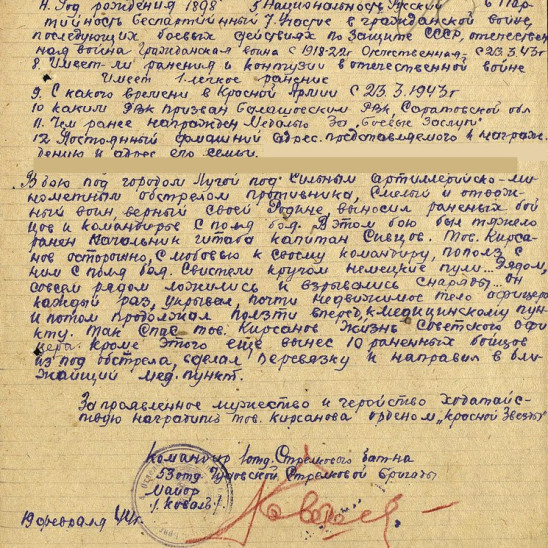 4. Год рождения 1898 5 Национальность Русский 6 Пар-
тийность беспартийный 7. Участие в гражданской войне,
последующих боевых действиях по защите СССР, отечествен
ная война Гражданская война с 1918-22г Отечественная с 23.3.43г
8. Имеет ли ранения и контузии в отечественной войне
Имеет 1 легкое ранение
9. С какого времени в Красной Армии с 23.3.1943г
10 каким РВК призван Балашовским РВК Саратовской обл
11. Чем ранее награжден Медалью За „Боевые Заслуги"
12. Постоянный домашний адрес представляемого к награж-
дению и адрес его семьи.
В бою под городом Лугой под сильным артиллерийско-ми-
нометным обстрелом противника, Смелый и отваж-
ный воин, верный своей Родине выносил раненых бой
цов и командиров с поля боя. В этом бою был тяжело
ранен Начальник штаба капитан Сивцов. Тов. Кирса-
нов осторожно, с любовью к своему командиру, пополз с
ним с поля боя. Свистели кругом немецкие пули... Рядом,
совсем рядом ложились и взрывались снаряды... он
каждый раз, укрывал, почти недвижимое тело офицера
и потом продолжал ползти вперед, к медицинскому пун-
кту. Так спас тов. Кирсанов жизнь Советского офи
цера. Кроме этого еще вынес 10 раненных бойцов
из под обстрела, сделал перевязку и направил в бли
жайщий мед. пункт.
За проявленное мужество и геройство ходатайс-
твую наградить тов. Кирсанова орденом „Красной Звезды"
Командир 1 отд. Стрелкового бат-на
53 отд Стрелковой Бригады
Майор
/Коваль/
19 февраля 44г.